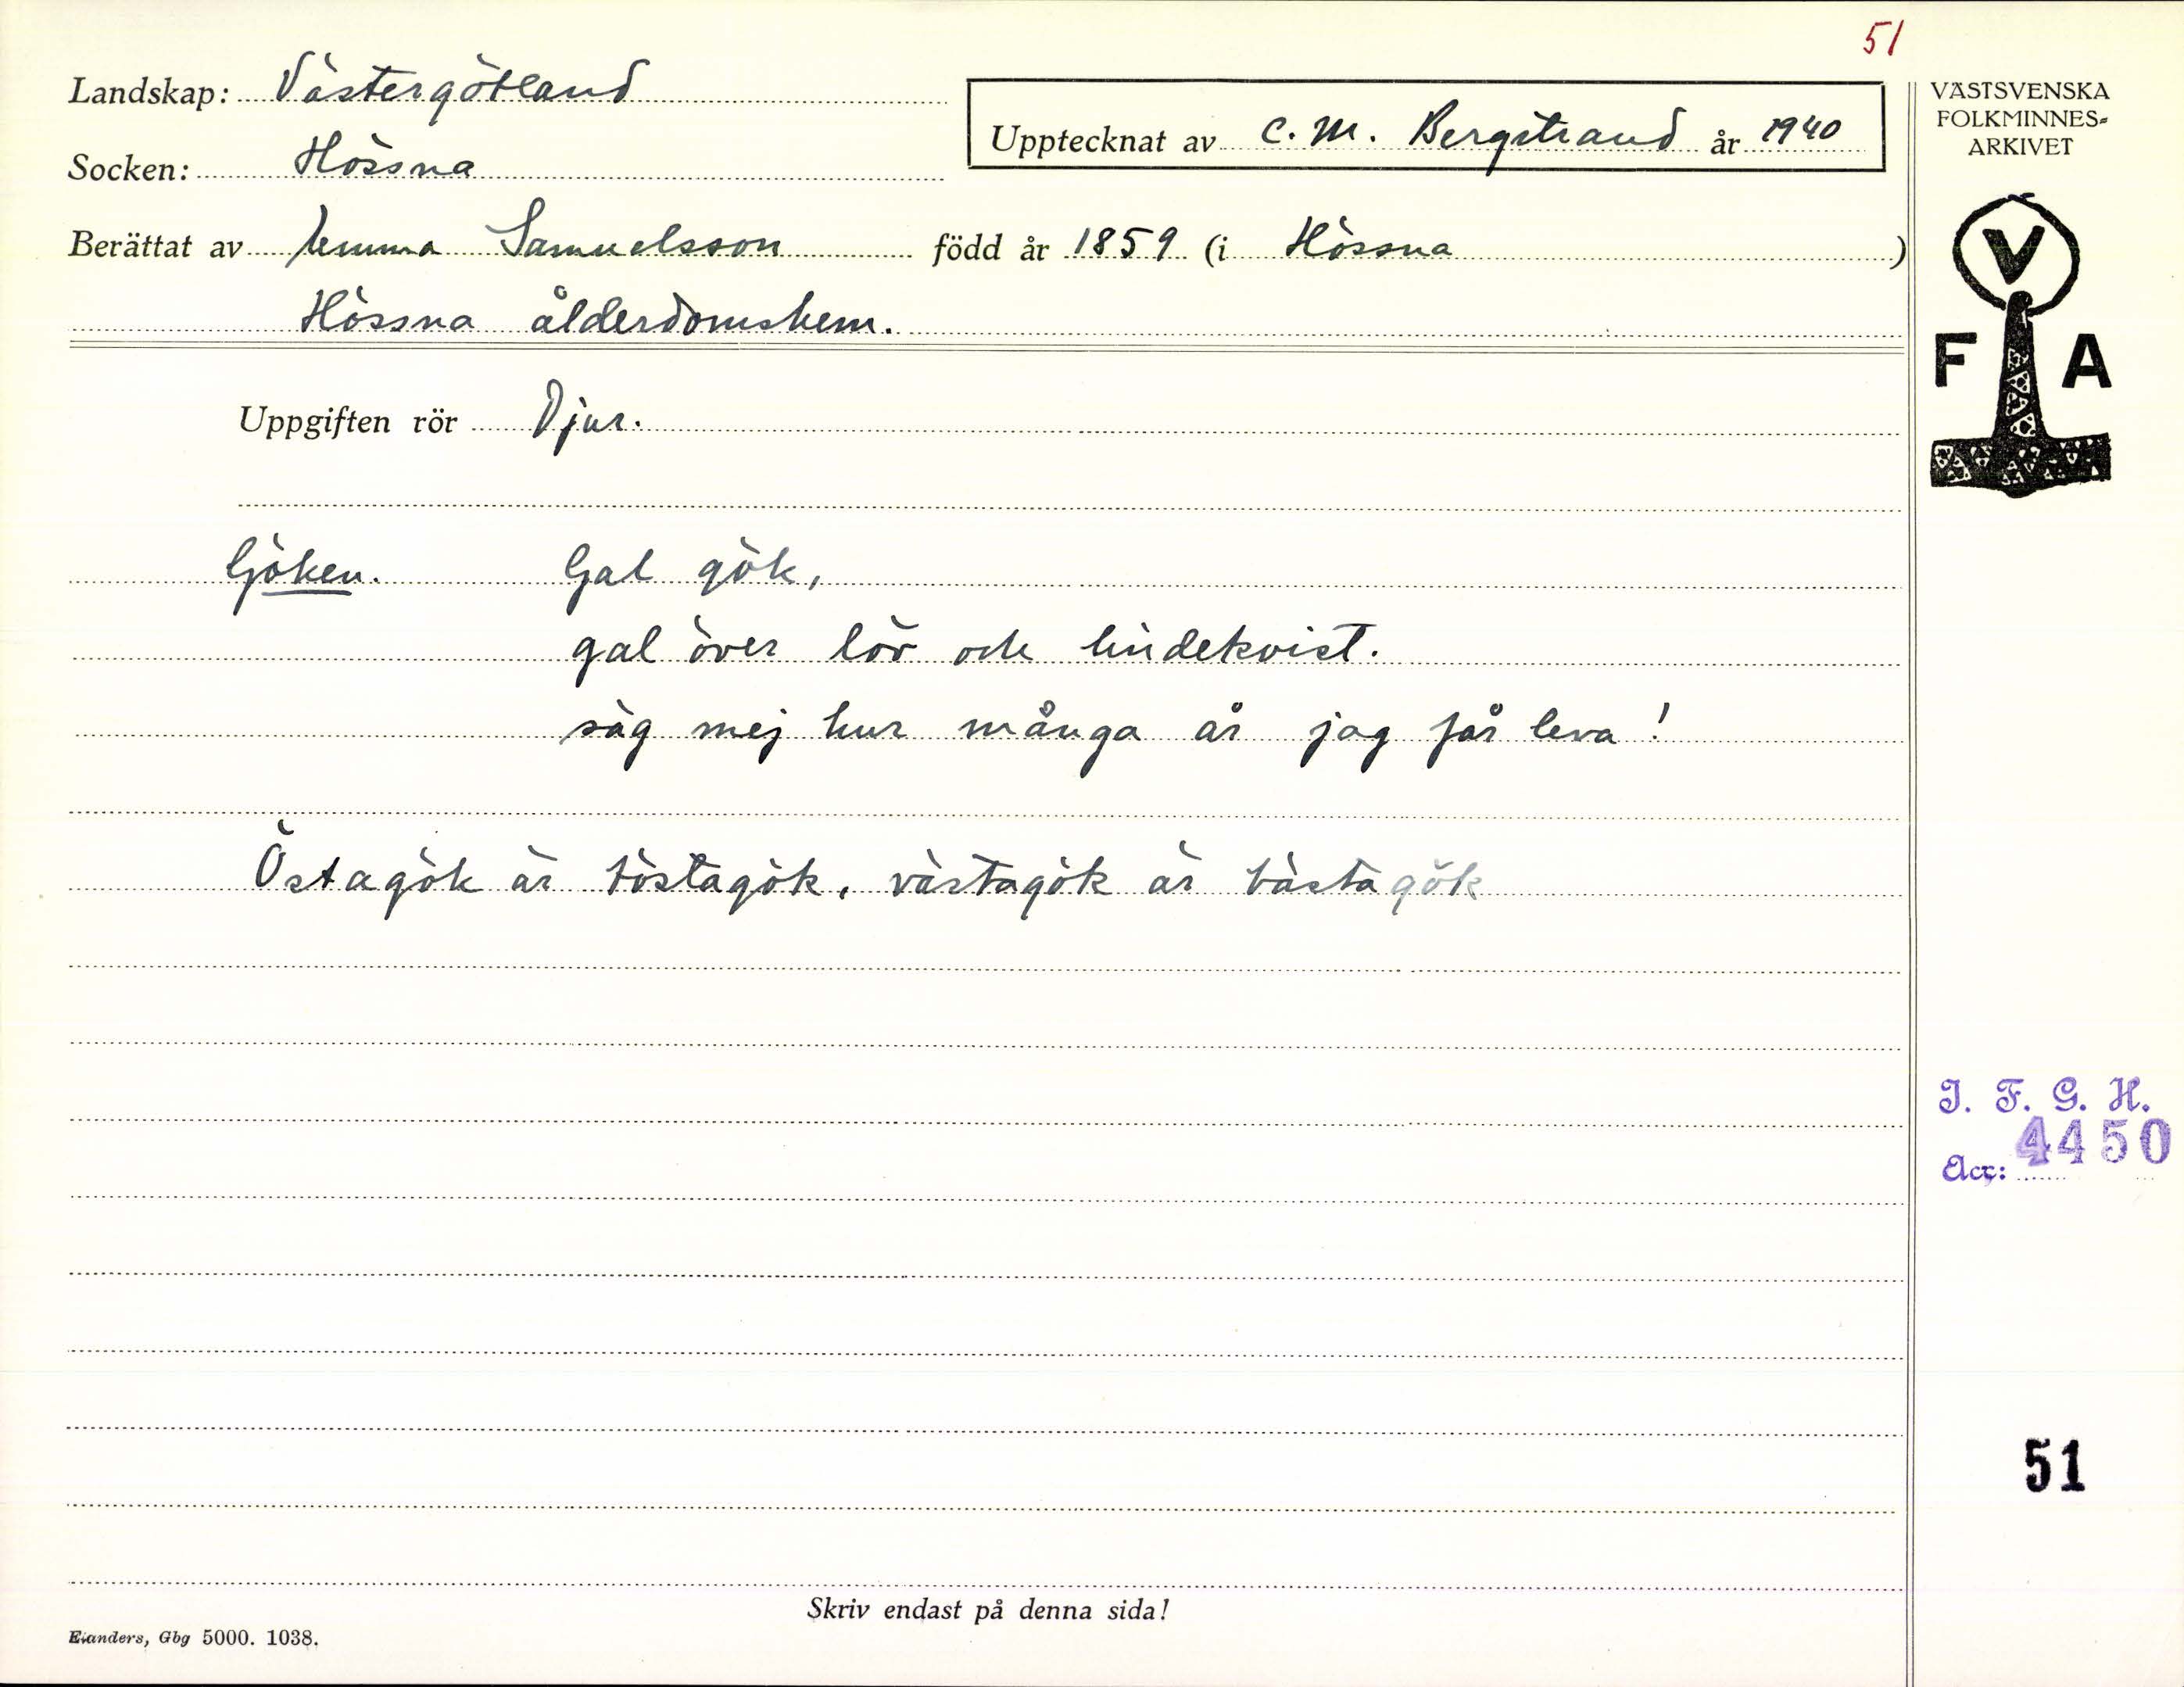 51
Landskap: Västergötland
Socken: Hössna
Upptecknat av C. M. Bergstrand år 1940
Berättat av Emma Samuelsson född år 1859 (i Hössna)
Hössna ålderdomshem.
VÄSTSVENSKA
FOLKMINNES-
ARKIVET
V
F A
Uppgiften rör Djur.
Göken. Gal gök,
gal över löv och lindekvist.
säg mej hur många år jag får leva!
Östagök är töstagök, västagök är bästa gök
I. F. G. H.
Acc: 4450
51
Skriv endast på denna sida!
Elanders, Gbg 5000. 1038.